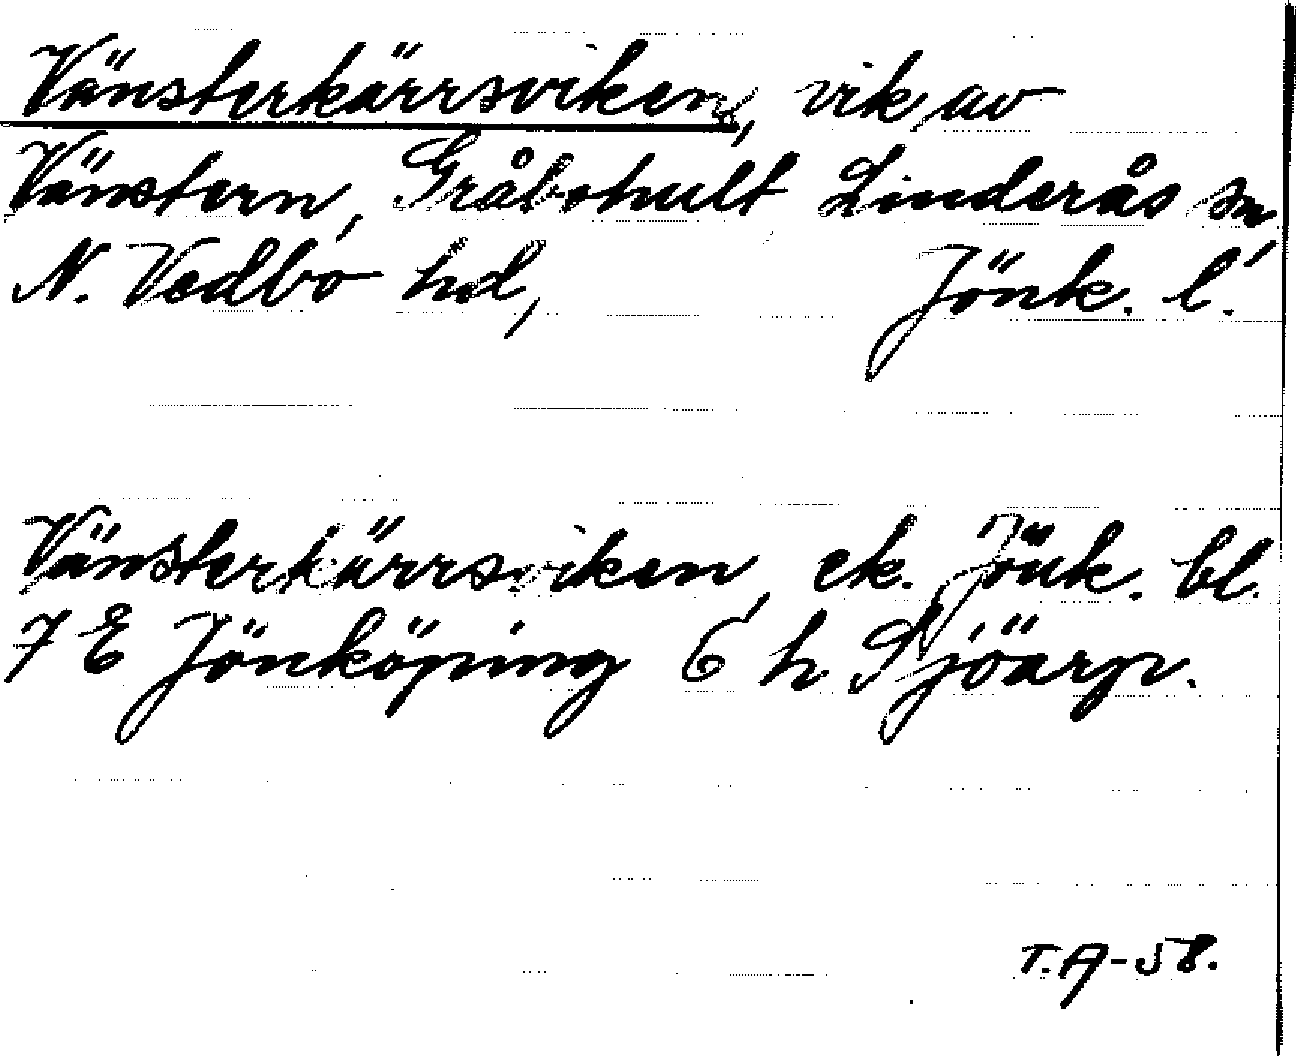 Vänsterkärrsviken, vik av
Vänstern, Gråbohult Linderås sn,
N. Vedbo hd, Jönk. l.
Vänsterkärrsviken, ek. Jönk. bl.
7 E Jönköping 6 h Sjöarp.
T.A-58.